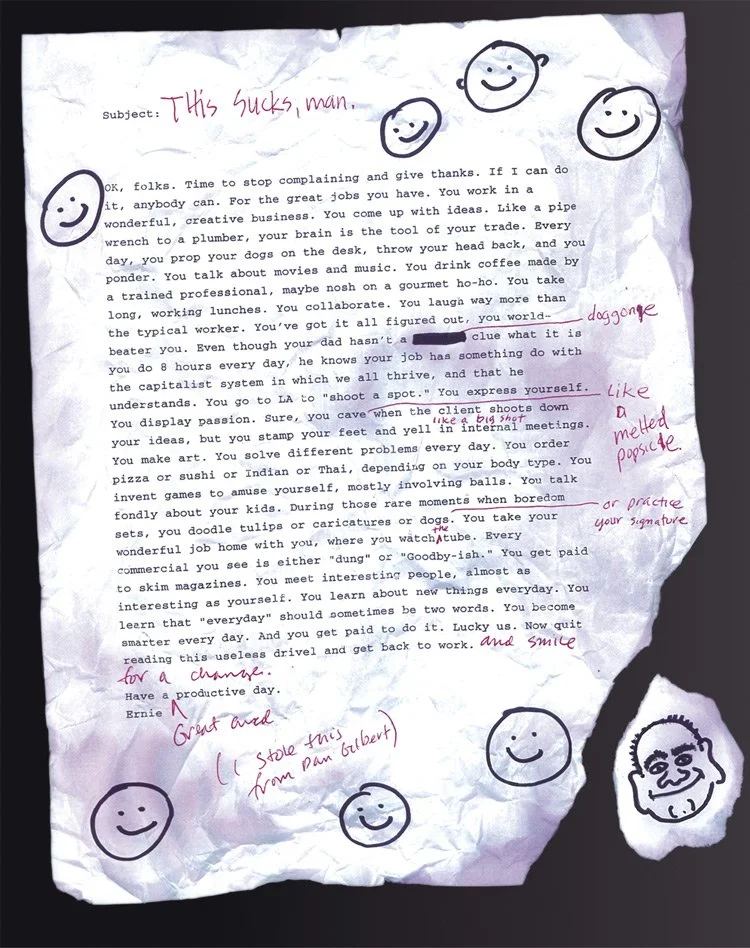 Subject: THis sucks, man.
OK, folks. Time to stop complaining and give thanks. If I can do
it, anybody can. For the great jobs you have. You work in a
wonderful, creative business. You come up with ideas. Like a pipe
wrench to a plumber, your brain is the tool of your trade. Every
day, you prop your dogs on the desk, throw your head back, and you
ponder. You talk about movies and music. You drink coffee made by
a trained professional, maybe nosh on a gourmet ho-ho. You take
long, working lunches. You collaborate. You laugh way more than
the typical worker. You've got it all figured out, you world-
doggone
beater you. Even though your dad hasn't a clue what it is
you do 8 hours every day, he knows your job has something do with
the capitalist system in which we all thrive, and that he
understands. You go to LA to "shoot a spot." You express yourself.
Like
a
melted
popsicle.
You display passion. Sure, you cave when the client shoots down
like a big shot
your ideas, but you stamp your feet and yell in internal meetings.
You make art. You solve different problems every day. You order
pizza or sushi or Indian or Thai, depending on your body type. You
invent games to amuse yourself, mostly involving balls. You talk
fondly about your kids. During those rare moments when boredom
or practice
your signature
sets, you doodle tulips or caricatures or dogs. You take your
the
wonderful job home with you, where you watch tube. Every
commercial you see is either "dung" or "Goodby-ish." You get paid
to skim magazines. You meet interesting people, almost as
interesting as yourself. You learn about new things everyday. You
learn that "everyday" should sometimes be two words. You become
smarter every day. And you get paid to do it. Lucky us. Now quit
reading this useless drivel and get back to work. and smile
for a change.
Have a productive day.
Ernie
Great and
(I stole this
from Dan Gilbert)